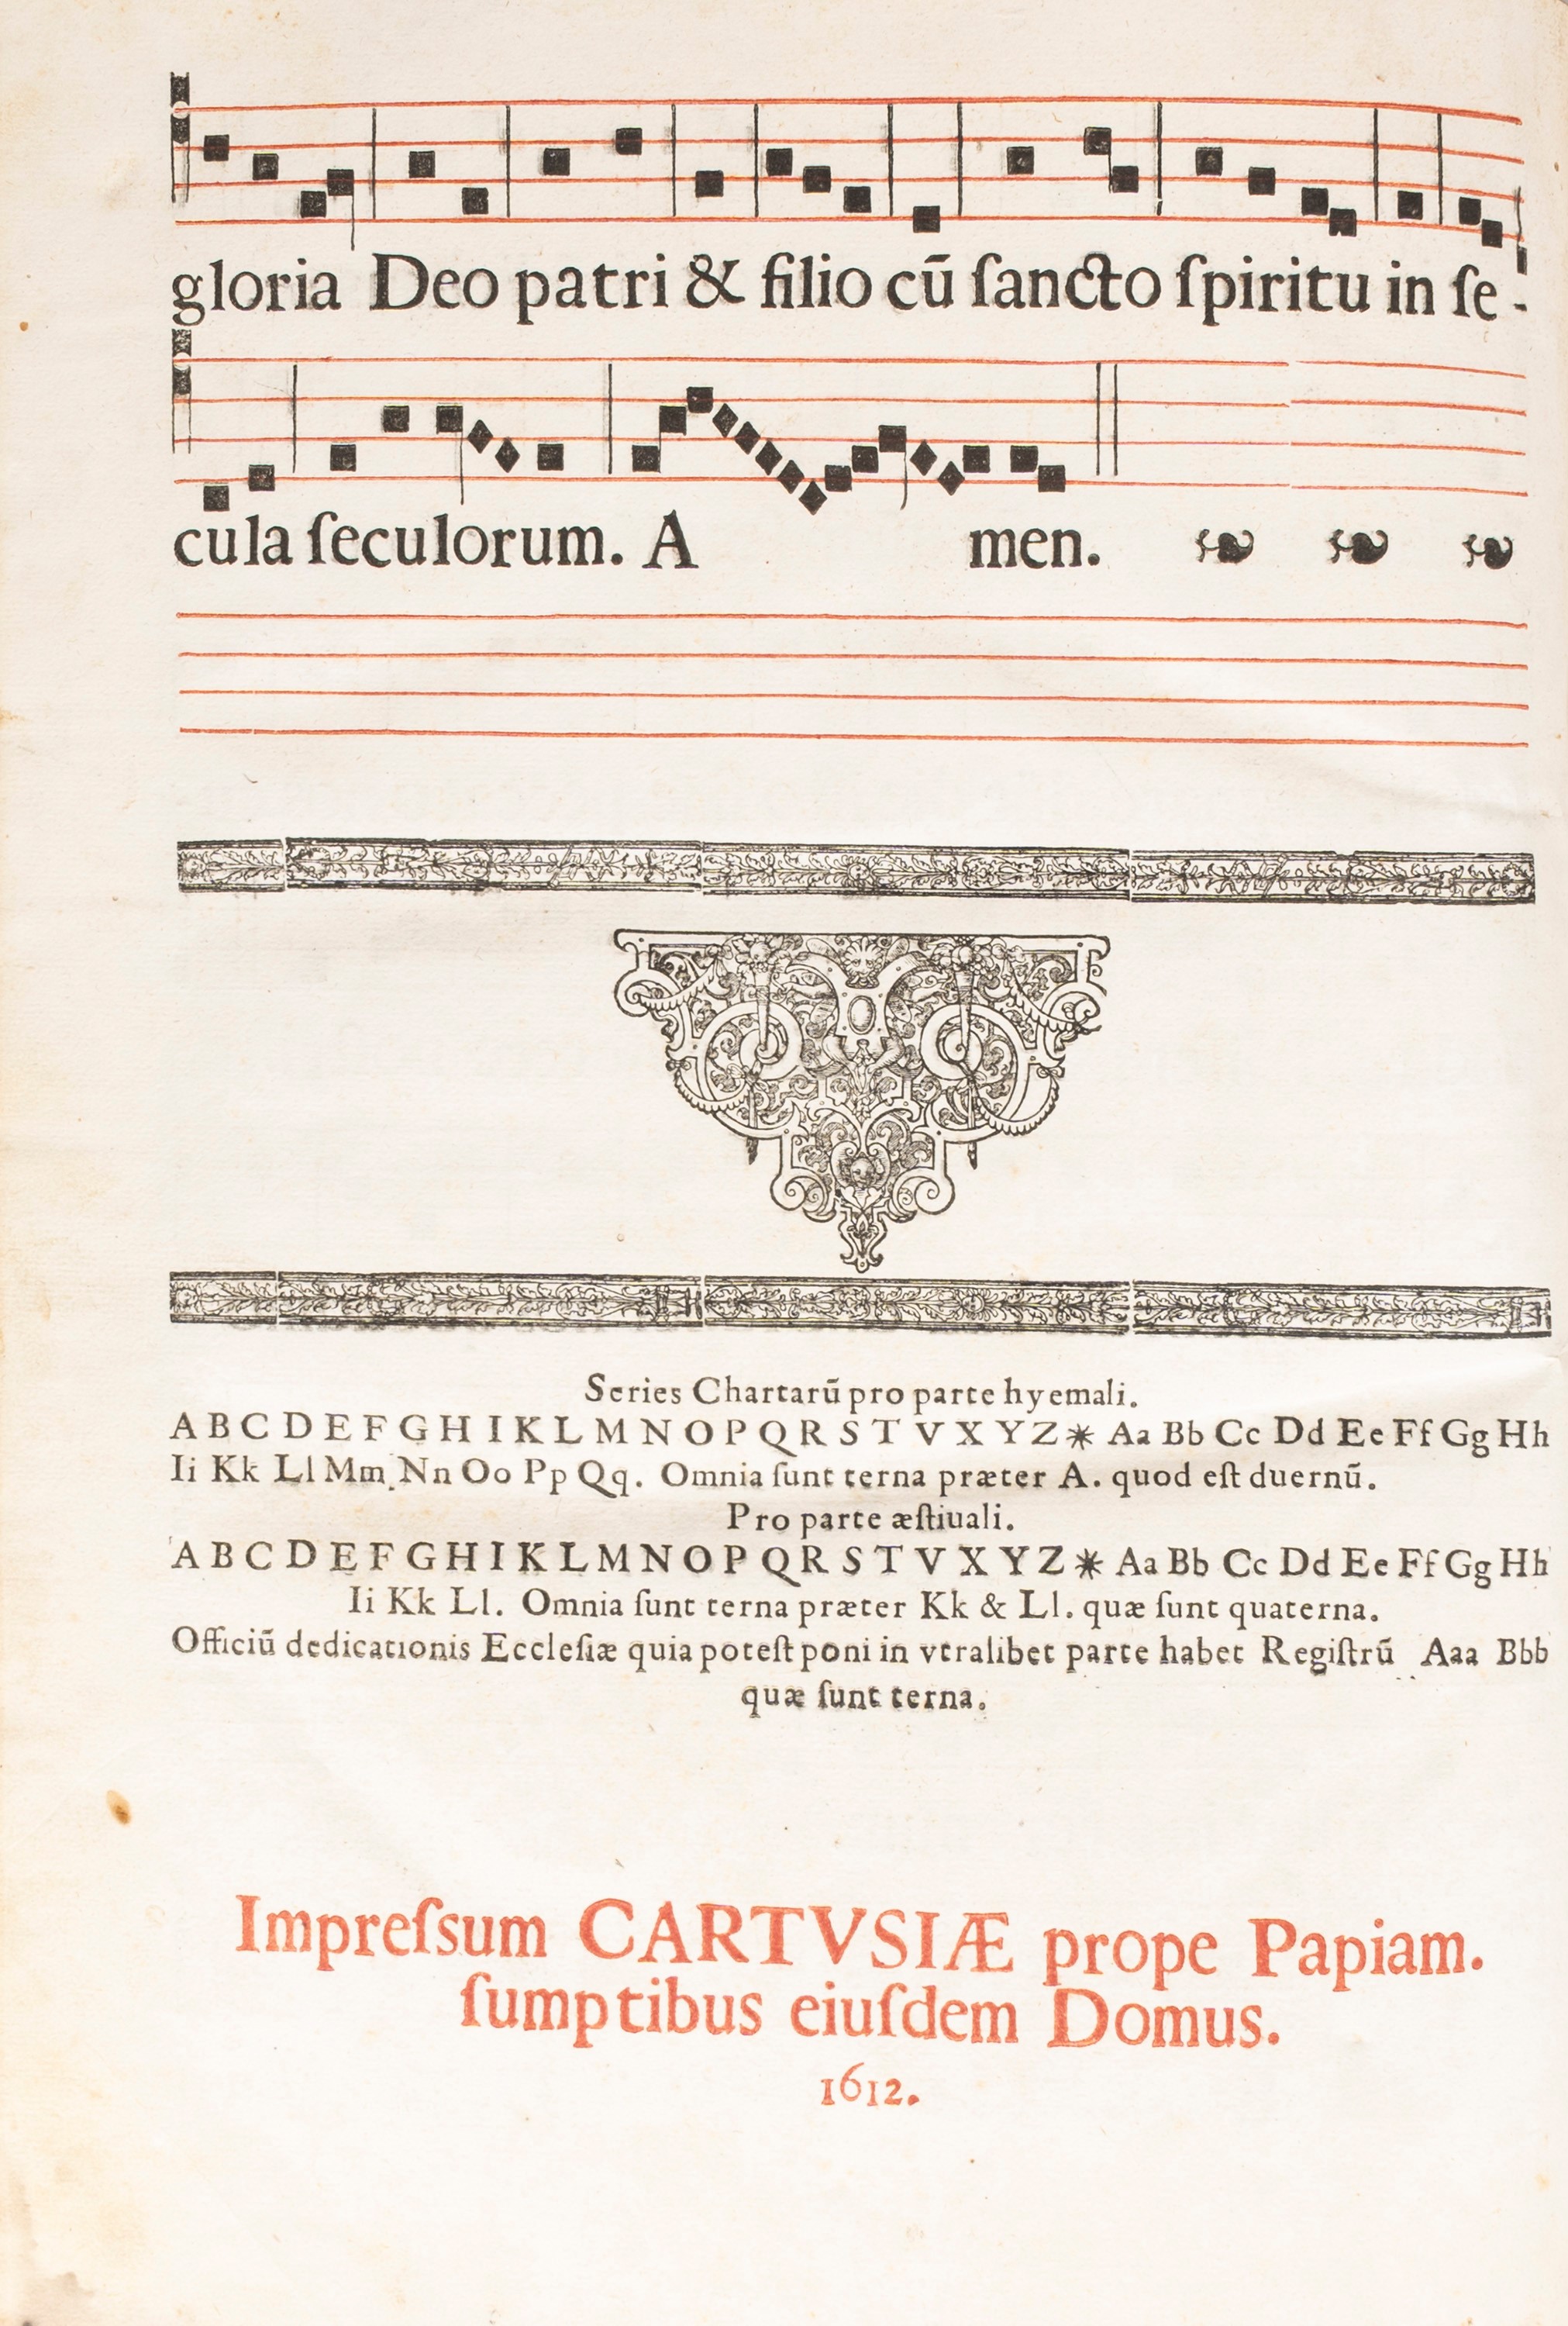 gloria Deo patri & filio cū ſancto ſpiritu in ſe-
cula ſeculorum. A men.
Series Chartarū pro parte hyemali.
A B C D E F G H I K L M N O P Q R S T V X Y Z ✷ Aa Bb Cc Dd Ee Ff Gg Hh
Ii Kk Ll Mm Nn Oo Pp Qq. Omnia ſunt terna præter A. quod eſt duernū.
Pro parte æſtiuali.
A B C D E F G H I K L M N O P Q R S T V X Y Z ✷ Aa Bb Cc Dd Ee Ff Gg Hh
Ii Kk Ll. Omnia ſunt terna præter Kk & Ll. quæ ſunt quaterna.
Officiū dedicationis Eccleſiæ quia poteſt poni in vtralibet parte habet Regiſtrū Aaa Bbb
quæ ſunt terna.
Impreſsum CARTVSIÆ prope Papiam.
ſumptibus eiuſdem Domus.
1612.